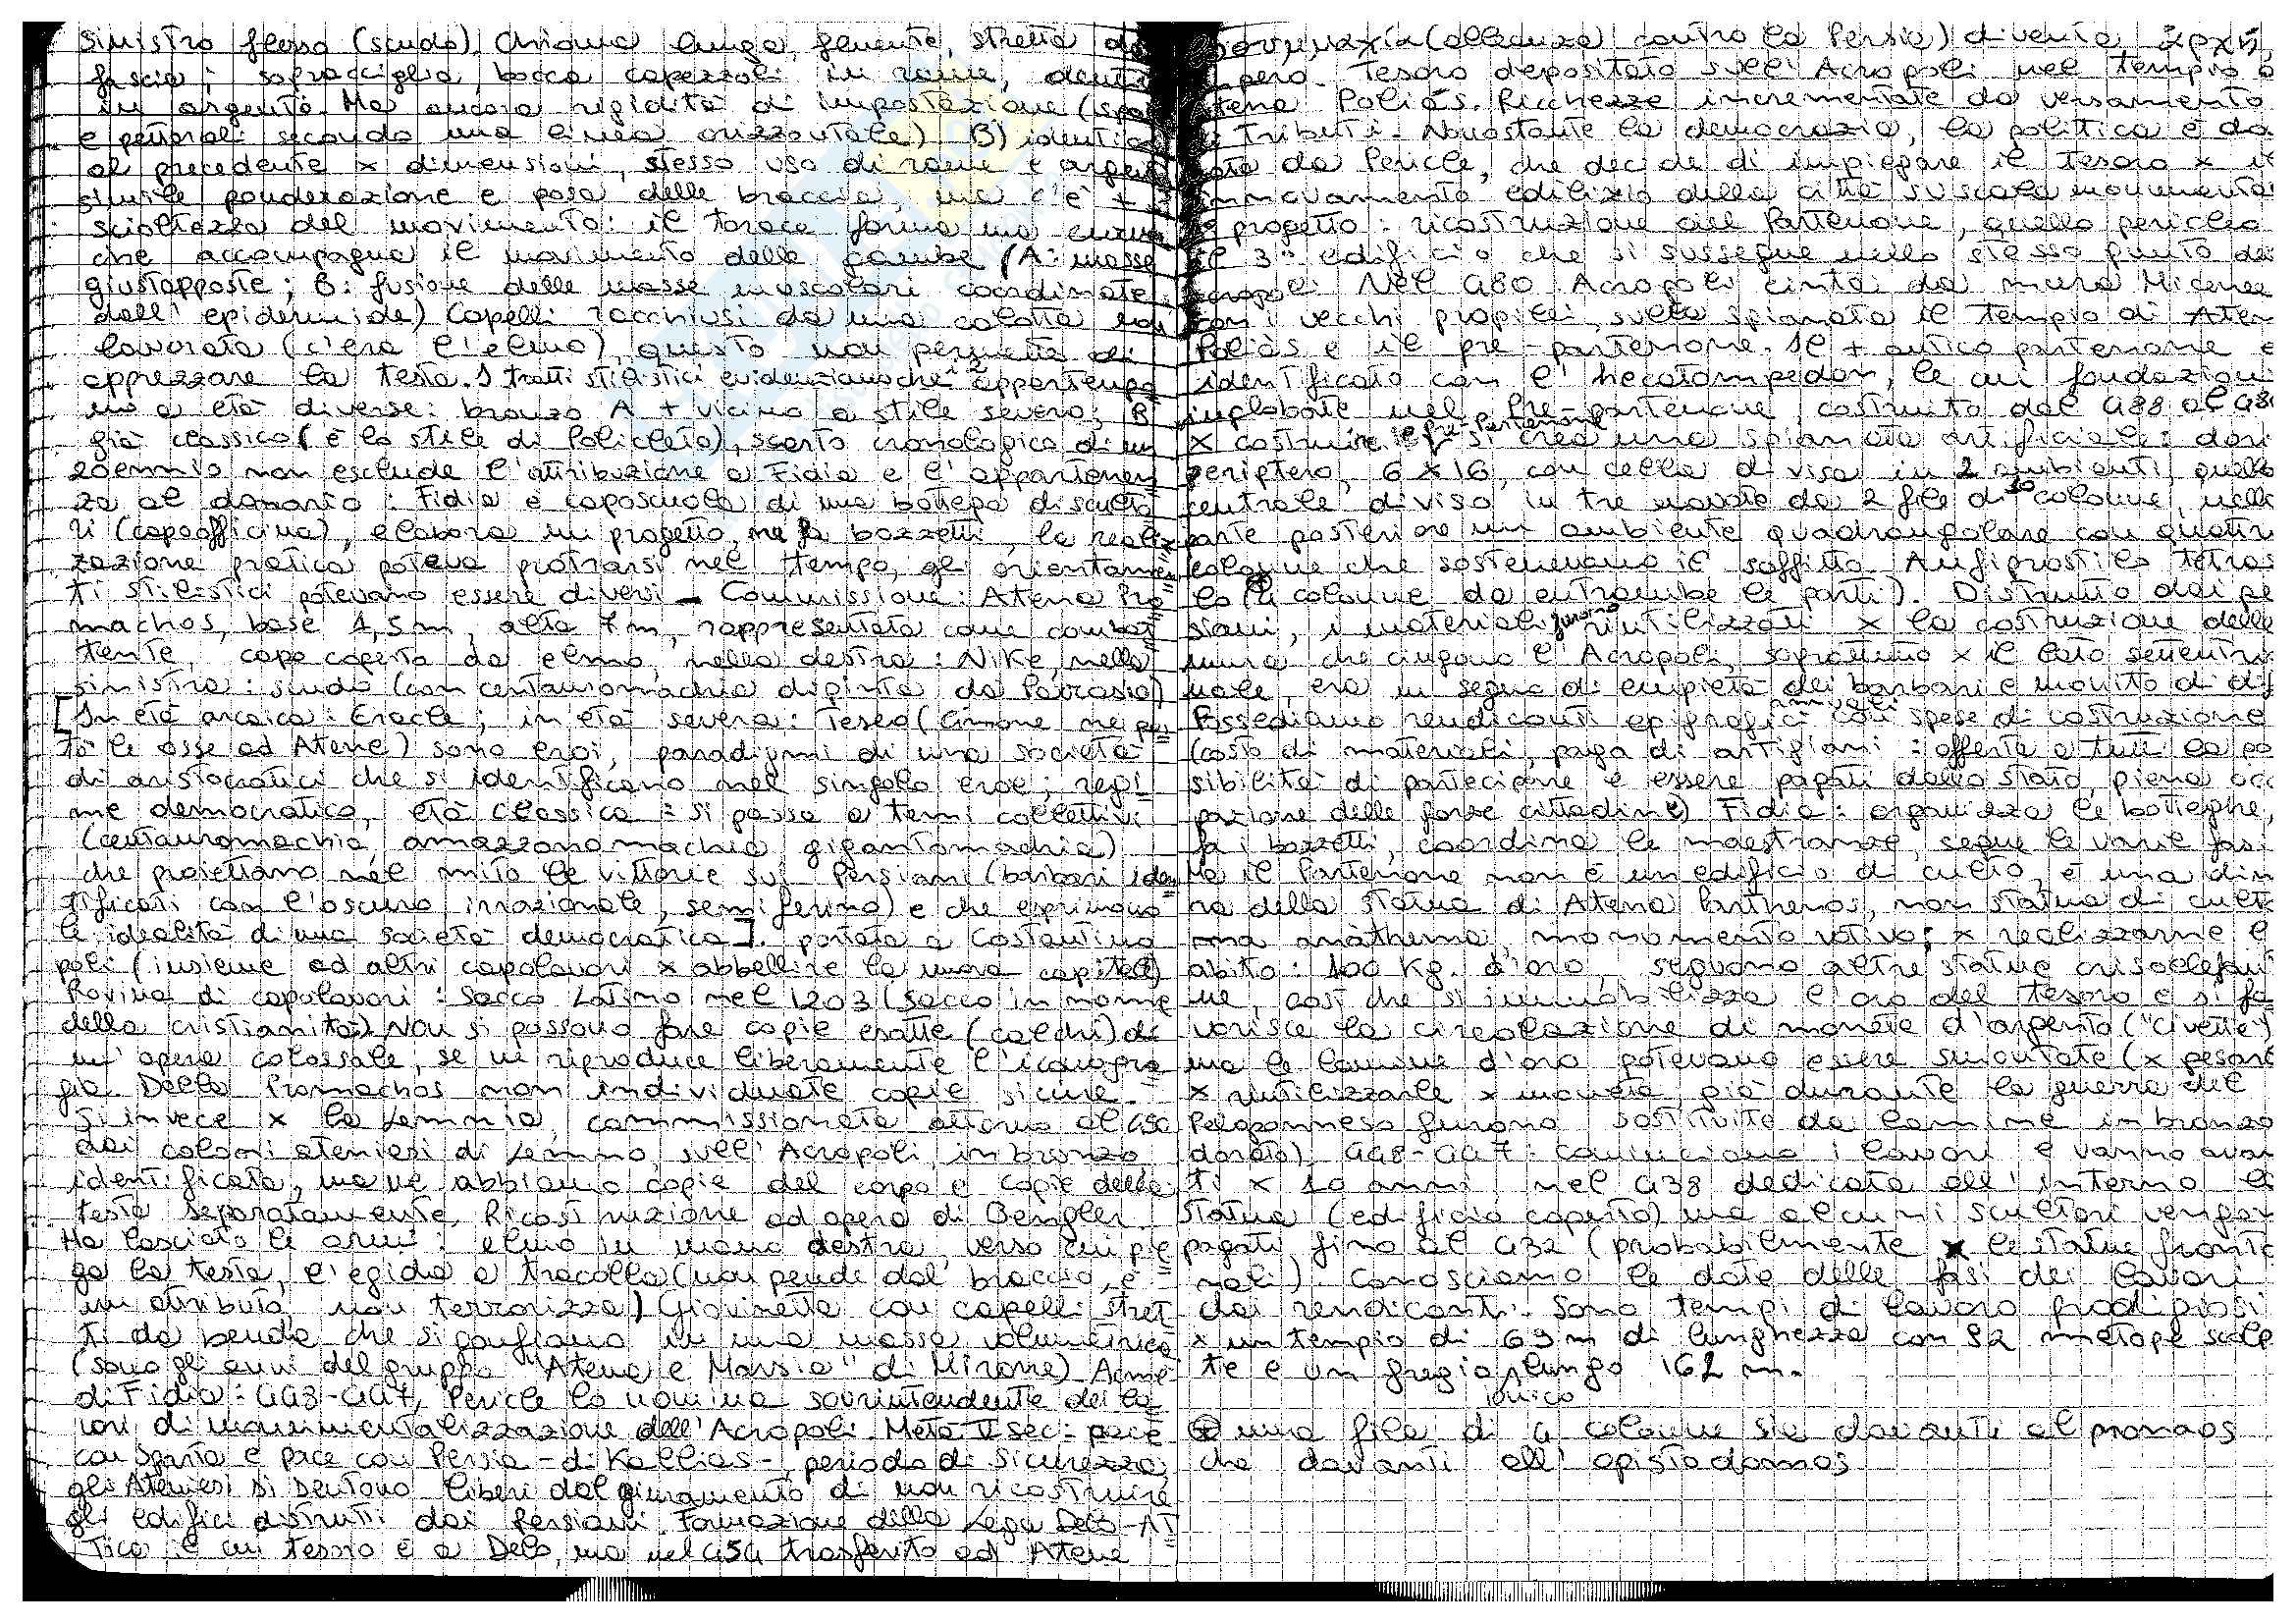 sinistro flesso (scudo). Chioma lunga, fluente, stretta da
fascia; sopracciglia, bocca capezzoli in rame, denti
in argento. Ma ancora rigidità di impostazione (spal
e pettorali secondo una linea orizzontale) B) identico
al precedente x dimensioni, stesso uso di rame e argento
simile ponderazione e posa delle braccia, ma c'è +
scioltezza del movimento: il torace forma una curva
che accompagna il movimento delle gambe (A: masse
giustapposte; B: fusione delle masse muscolari coordinate
dall'epidermide) Capelli racchiusi da una calotta non
lavorata (c'era l'elmo), questo non permette di
apprezzare la testa. I tratti stilistici evidenziano che i 2 appartengo
no a età diverse: bronzo A + vicino a stile severo; B
già classico (è lo stile di Policleto), scarto cronologico di un
20ennio non esclude l'attribuzione a Fidia e l'appartenen
za al donario: Fidia è caposcuola di una bottega di sculto
ri (capoofficina), elabora un progetto, ne fa bozzetti, la realiz
zazione pratica poteva protrarsi nel tempo, gli orientamen
ti stilistici potevano essere diversi - Commissione: Atena Pro
machos, base 1,5m, alta 7m, rappresentata come combat
tente, capo coperto da elmo, nella destra: Nike, nella
sinistra: scudo (con centauromachia dipinta da Parrasio)
[In età arcaica: Eracle; in età severa: Teseo (Cimone ne por
tò le ossa ad Atene) sono eroi, paradigmi di una società
di aristocratici che si identificano nel singolo eroe; regi
me democratico, età classica: si passa a temi collettivi
(centauromachia, amazzonomachia gigantomachia)
che proiettano nel mito le vittorie sui Persiani (barbari iden
tificati con l'oscuro, irrazionale, semiferino) e che esprimono
le idealità di una società democratica]. portata a Costantino
poli (insieme ad altri capolavori x abbellire la nuova capitale)
Rovina di capolavori: Sacco Latino nel 1203 (sacco in nome
della cristianità) Non si possono fare copie esatte (calchi) di
un'opera colossale, se ne riproduce liberamente l'iconogra
fia. Della Promachos non individuate copie sicure.
Sì invece x la Lemnia, commissionata attorno al 450
dai coloni ateniesi di Lemno, sull'Acropoli, in bronzo,
identificata, ma ne abbiamo copie del corpo e copie della
testa separatamente. Ricostruzione ad opera di
Ha lasciato le armi: elmo in mano destra, verso cui pie
ga la testa, l'egida a tracolla (non pende dal braccio, è
un attributo, non terrorizza) Giovinetta con capelli stret
ti da benda che si gonfiano in una massa volumetrica
(sono gli anni del gruppo "Atena e Marsia" di Mirone) Acme
di Fidia: 448-447, Pericle lo nomina sovrintendente dei la
vori di monumentalizzazione dell'Acropoli. Metà V sec: pace
con Sparta e pace con Persia - di Kallias -, periodo di sicurezza,
gli Ateniesi si sentono liberi dal giuramento di non ricostruire
gli edifici distrutti dai Persiani. Formazione della Lega Delio-At
tica, il cui tesoro è a Delo, ma nel 454 trasferito ad Atene
(alleanza contro la Persia) diventa
impero. Tesoro depositato sull'Acropoli nel tempio
Atena Poliàs. Ricchezze incrementate da versamento
tributi. Nonostante la democrazia, la politica è do
da Pericle, che decide di impiegare il tesoro x il
rinnovamento edilizio della città su scala monumenta
progetto: ricostruzione del Partenone, quello pericleo
il 3° edificio che si sussegue nello stesso punto del
acropoli. Nel 480 Acropoli cinta da mura Micenee
con i vecchi propilei, sulla spianata il tempio di Aten
Poliàs e il pre-partenone. Il + antico partenone è
identificato con l'hecatompedon, le cui fondazioni
inglobate nel Pre-partenone, costruito dal 488 al 480
x costruire il Pre-Partenone si crea una spianata artificiale: dori
periptero, 6x16, con cella divisa in 2 ambienti, quello
centrale diviso in tre navate da 2 file di 10 colonne, nella
parte posteriore un ambiente quadrangolare con quattro
colonne che sostenevano il soffitto. Anfiprostilo tetras
lo ⊕ (4 colonne da entrambe le parti). Distrutto dai pe
siani, i materiali furono riutilizzati x la costruzione delle
mura che cingono l'Acropoli, soprattutto x il lato settentrio
nale, era un segno di empietà dei barbari e monito di dif
Possediamo rendiconti epigrafici annuali con spese di costruzione
(costo di materiali, paga di artigiani: offerta a tutti la po
sibilità di partecipare e essere pagati dallo stato, piena occ
pazione delle forze cittadine) Fidia: organizza le botteghe,
fa i bozzetti, coordina le maestranze, segue le varie fasi
Ma il Partenone non è un edificio di culto, è una dim
ra della statua di Atena Parthenos, non statua di culto
ma anàthema, monumento votivo; x realizzarne l'
abito: 100 Kg. d'oro, seguono altre statue crisoelefant
ne, così che si immobilizza l'oro del tesoro e si fa
vorisce la circolazione di monete d'argento ("civette")
ma le lamine d'oro potevano essere smontate (x pesare
x riutilizzarle x moneta, già durante la guerra del
Peloponneso furono sostituite da lamine in bronzo
dorato). 448-447: cominciano i lavori e vanno avan
ti x 10 anni, nel 438 dedicata all'interno la
statua (edificio coperto) ma alcuni scultori vengon
pagati fino al 432 (probabilmente x le statue fronto
nali). Conosciamo le date delle fasi dei lavori
dai rendiconti. Sono tempi di lavoro prodigiosi
x un tempio di 69 m di lunghezza con 92 metope scolp
te e un fregio ionico lungo 162 m.
⊕ una fila di 4 colonne sia davanti al pronaos
che davanti all'opistodomos